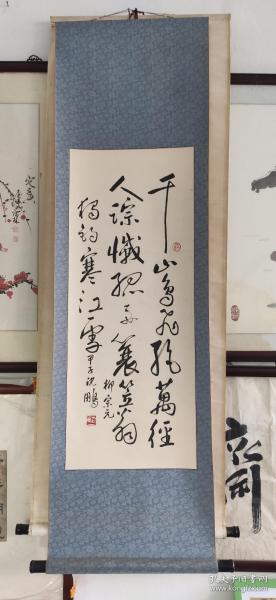 千山鸟飛絕萬徑
人踪滅孤舟蓑笠翁
柳宗元
獨釣寒江雪 甲子祝鵬